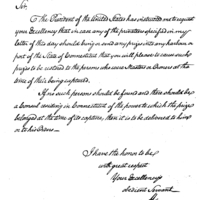 Sir,
The President of the United States has instructed me to request
your Excellency that in case any of the privateers specified in my
letter of this day should bring or send any prizes into any harbour or
port of the State of Connecticut that you will please to cause such
prizes to be restored to the persons who were Masters or Owners at the
time of their being captured.
If no such persons should be found and there should be
a Consul residing in Connecticut of the power to which the prizes
belonged at the time of its capture, then it is to be delivered to him
or to his Orders.
I have the honor to be
with great respect
Your Excellency's
obedient Servant